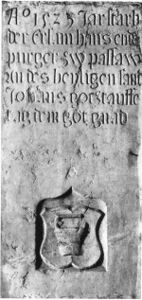 A⁰ 1525 Jar starb
der ersam hans ends
purger zw passaw
an des heyligen sant
Johans gotztauffe
tag dem got gnad